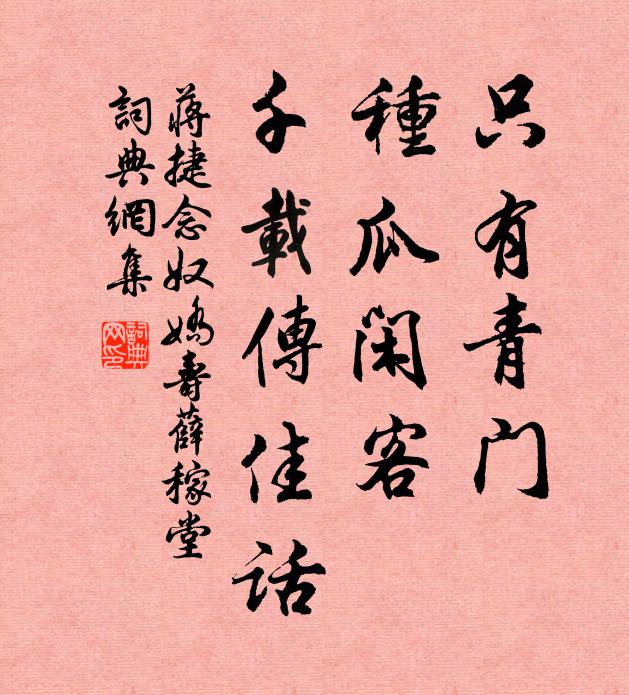 只有青门
種瓜閑客
千載傳佳話
蔣捷念奴嬌壽薛稼堂
詞典網集
詞典网印